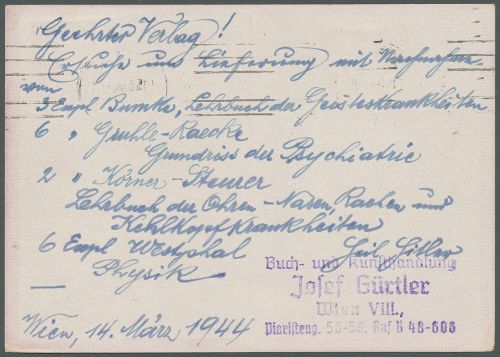 Geehrter Verlag!
Ersuche um Lieferung mit Nachnahme
von
3 Expl Bumke, Lehrbuch der Geisteskrankheiten
6 " Gruhle-Raecke
Grundriss der Psychiatrie
2 " Körner-Steurer
Lehrbuch der Ohren- Nasen, Rachen und
Kehlkopfkrankheiten
6 Expl Westphal
Physik
Heil Hitler
Buch- und Kunsthandlung
Josef Gürtler
Wien VIII.,
Piaristeng. 56-58. Ruf B 48-606
Wien, 14. März 1944